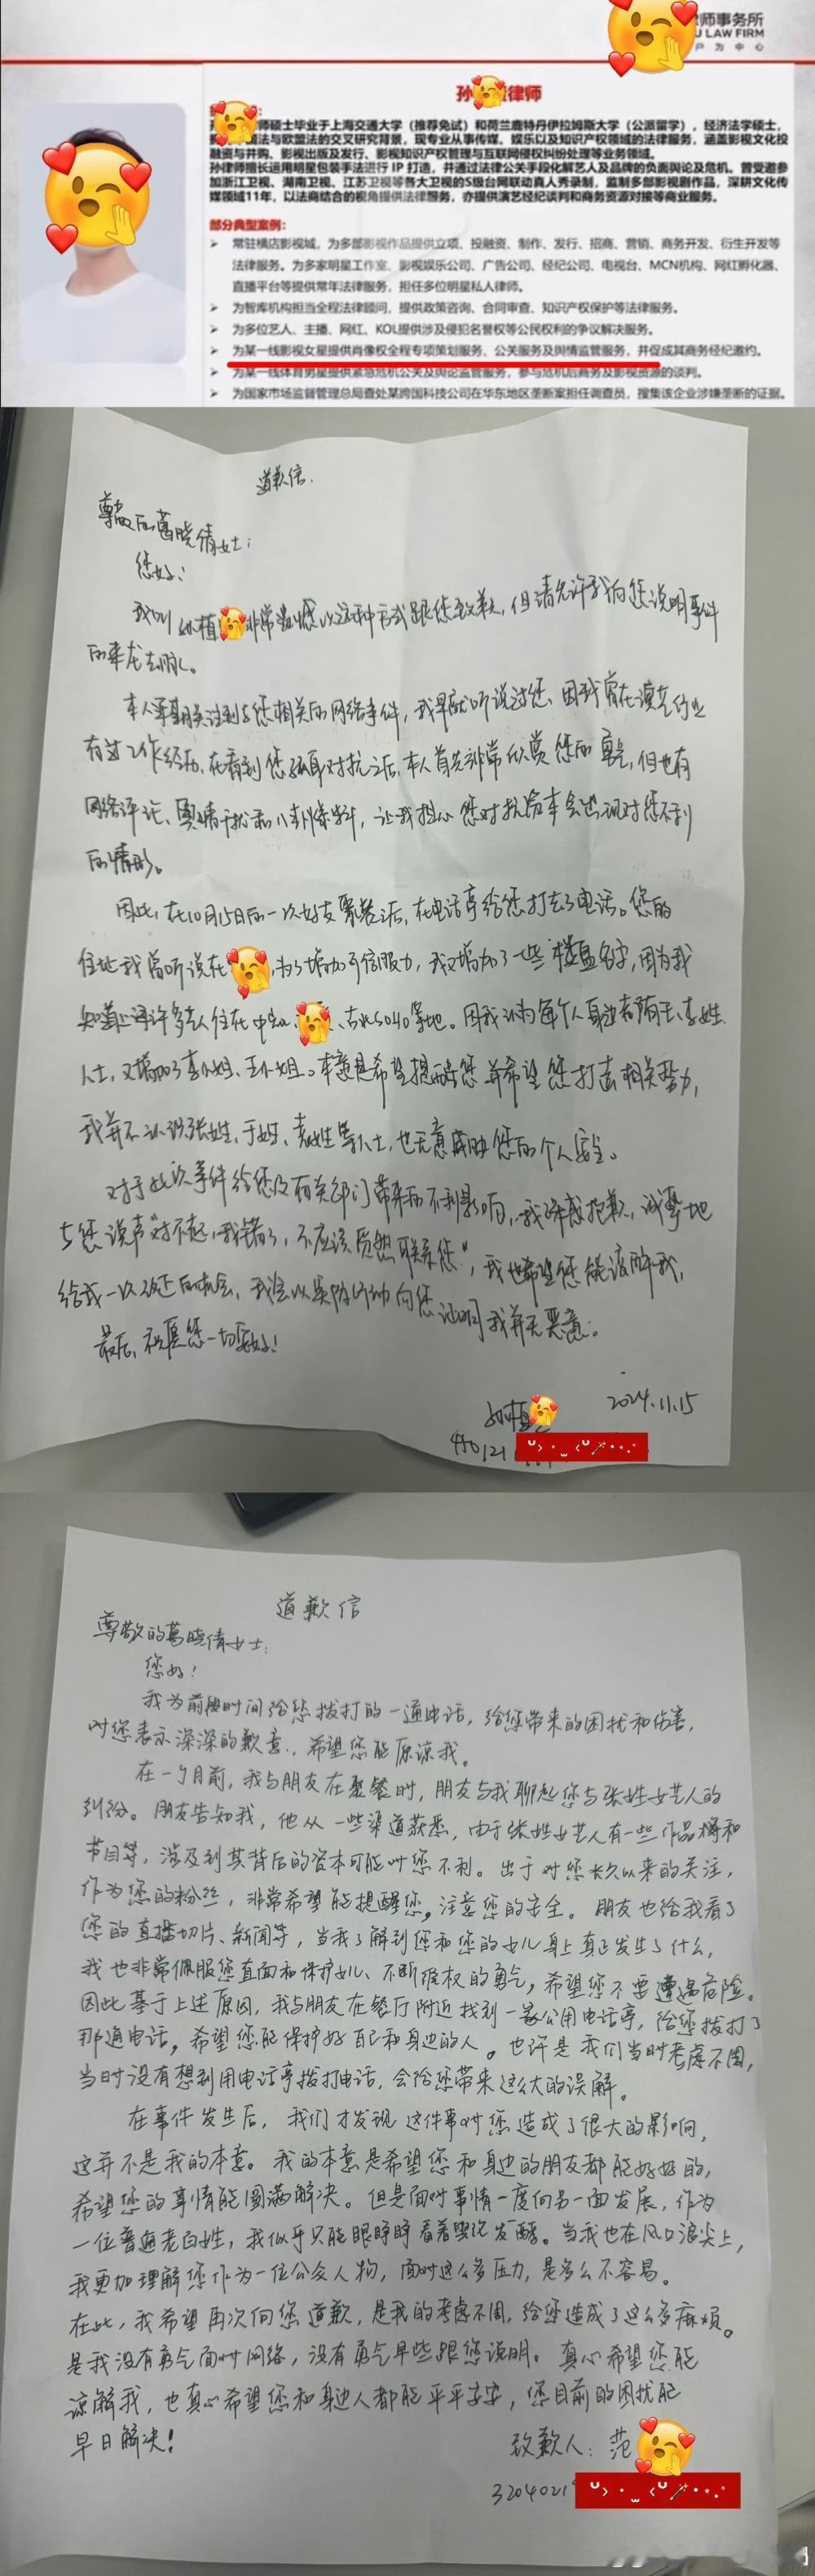 师事务所
LAW FIRM
户 为 中 心
孙 律师
师硕士毕业于上海交通大学（推荐免试）和荷兰鹿特丹伊拉姆斯大学（公派留学），经济法学硕士，
法与欧盟法的交叉研究背景，现专业从事传媒、娱乐以及知识产权领域的法律服务，涵盖影视文化投
融资与并购、影视出版及发行、影视知识产权管理与互联网侵权纠纷处理等业务领域。
孙律师擅长运用明星包装手法进行 IP 打造，并通过法律公关手段化解艺人及品牌的负面舆论及危机。曾受邀参
加浙江卫视、湖南卫视、江苏卫视等各大卫视的S级台网联动真人秀录制，监制多部影视剧作品，深耕文化传
媒领域11年，以法商结合的视角提供法律服务，亦提供演艺经纪谈判和商务资源对接等商业服务。
部分典型案例：
常驻横店影视城，为多部影视作品提供立项、投融资、制作、发行、招商、营销、商务开发、衍生开发等
法律服务。为多家明星工作室、影视娱乐公司、广告公司、经纪公司、电视台、MCN机构、网红孵化器、
直播平台等提供常年法律服务，担任多位明星私人律师。
为智库机构担当全程法律顾问，提供政策咨询、合同审查、知识产权保护等法律服务。
为多位艺人、主播、网红、KOL提供涉及侵犯名誉权等公民权利的争议解决服务。
为某一线影视女星提供肖像权全程专项策划服务、公关服务及舆情监管服务，并促成其商务经纪邀约。
为某一线体育男星提供紧急危机公关及舆论监管服务，参与危机后商务及影视资源的谈判。
为国家市场监督管理总局查处某跨国科技公司在华东地区垄断案担任调查员，搜集该企业涉嫌垄断的证据。
道歉信.
尊敬的葛晓倩女士：
您好！
我叫孙植 非常遗憾以这种方式跟您致歉，但请允许我向您说明事件
的来龙去脉。
本人早期关注到与您相关的网络事件，我早就听说过您、因我曾在演艺行业
有过工作经历、在看到您孤身对抗之后，本人首先非常欣赏您的勇气，但也有
网络评论、舆情干扰和八卦爆料，让我担心您对抗资本会出现对您不利
的情形。
因此，在10月15日的一次好友聚餐后，在电话亭给您打去了电话。您的
住址我曾听说在 ，为了增加可信服力，我又增加了一些楼盘名字，因为我
知道上海许多艺人住在中 、 5040等地。因我认为每个人身边都有王、李姓
人士，又增加了李小姐、王小姐。本意是希望提醒您并希望您打击相关势力，
我并不认识张姓、于姓、袁姓等人士，也无意威胁您的个人安全。
对于此次事件给您及有关部门带来的不利影响，我深感抱歉，诚挚地
与您说声“对不起，我错了，不应该贸然联系您”，我也希望您能谅解我，
给我一次改正的机会，我会以实际行动向您证明我并无恶意。
最后，祝愿您一切安好！
孙植
2024.11.15
440121
道歉信
尊敬的葛晓倩女士：
您好！
我为前段时间给您拨打的一通电话，给您带来的困扰和伤害，
对您表示深深的歉意，希望您能原谅我。
在一个月前，我与朋友在聚餐时，朋友与我聊起您与张姓女艺人的
纠纷。朋友告知我，他从一些渠道获悉，由于张姓女艺人有一些作品待和
节目等，涉及到其背后的资本可能对您不利。出于对您长久以来的关注，
作为您的粉丝，非常希望能提醒您，注意您的安全。朋友也给我看了
您的直播切片、新闻等，当我了解到您和您的女儿身上真正发生了什么，
我也非常佩服您直面和保护女儿、不断维权的勇气，希望您不要遭遇危险。
因此基于上述原因，我与朋友在餐厅附近找到一家公用电话亭，给您拨打了
那通电话，希望您能保护好自己和身边的人。也许是我们当时考虑不周，
当时没有想到用电话亭拨打电话，会给您带来这么大的误解。
在事件发生后，我们才发现这件事对您造成了很大的影响，
这并不是我的本意。我的本意是希望您和身边的朋友都能好好的，
希望您的事情能圆满解决。但是面对事情一度向另一面发展，作为
一位普通老百姓，我似乎只能眼睁睁看着舆论发酵。当我也在风口浪尖上，
我更加理解您作为一位公众人物，面对这么多压力，是多么不容易。
在此，我希望再次向您道歉，是我的考虑不周，给您造成了这么多麻烦。
是我没有勇气面对网络，没有勇气早些跟您说明。真心希望您能
谅解我，也真心希望您和身边人都能平平安安，您目前的困扰能
早日解决！
致歉人：范
3204021